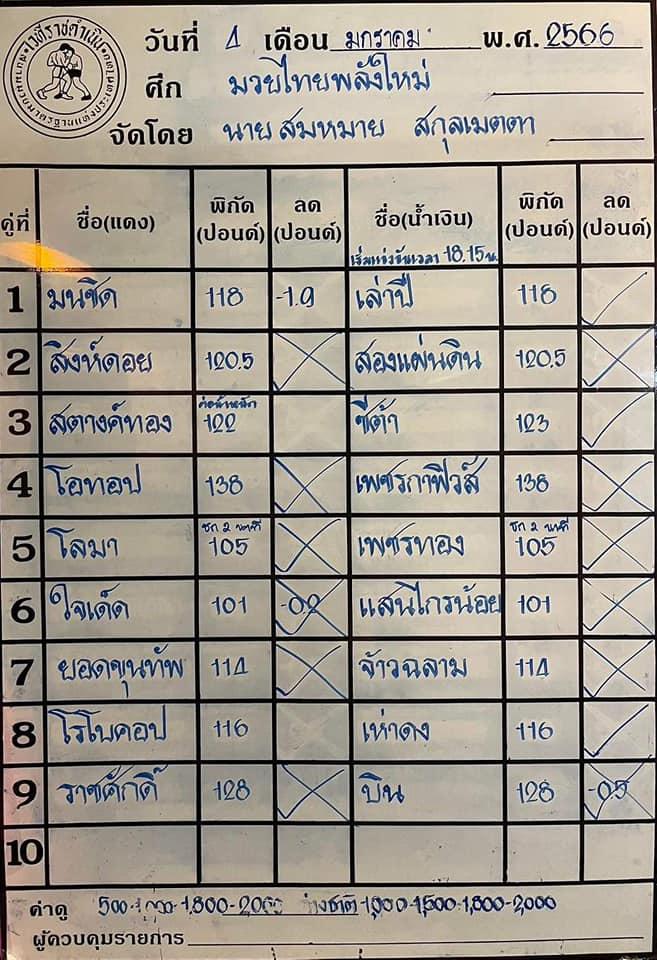 เวทีราชดำเนิน
วันที่ 4 เดือน มกราคม พ.ศ. 2566
ศึก มวยไทยพลังใหม่
จัดโดย นายสมหมาย สกุลเมตตา
คู่ที่ ชื่อ(แดง) พิกัด (ปอนด์) ลด (ปอนด์) ชื่อ(น้ำเงิน) พิกัด (ปอนด์) ลด (ปอนด์)
เริ่มแข่งขันเวลา 18.15 น.
1 มนชิด 118 -1.9 เล่าปี่ 118
2 สิงห์ดอย 120.5 สองแผ่นดิน 120.5
3 สตางค์ทอง ต่อน้ำหนัก 122 ซีต้า 123
4 โอทอป 138 เพชรกาฬิวัส 138
5 โลมา ชก 2 นาที 105 เพชรทอง ชก 2 นาที 105
6 ใจเด็ด 101 -0.2 แสนไกรน้อย 101
7 ยอดขุนทัพ 114 จ้าวฉลาม 114
8 โรโบคอป 116 เห่าดง 116
9 ราชศักดิ์ 128 บิน 128 -0.5
10
ค่าดู 500-1,000-1,800-2,000 ต่างชาติ 1,000-1,500-1,800-2,000
ผู้ควบคุมรายการ